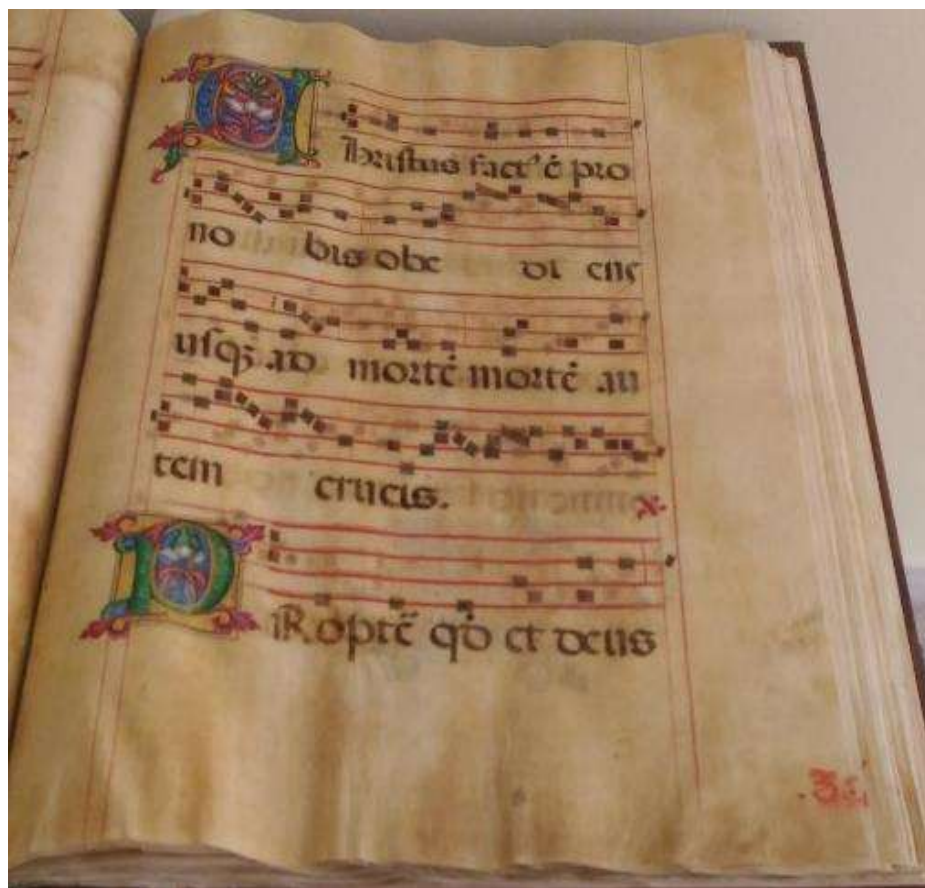 Christus fact' ē pro
no bis obe di ens
usqȝ ad mortē mortē au
tem crucis.
PRoptē qd et deus